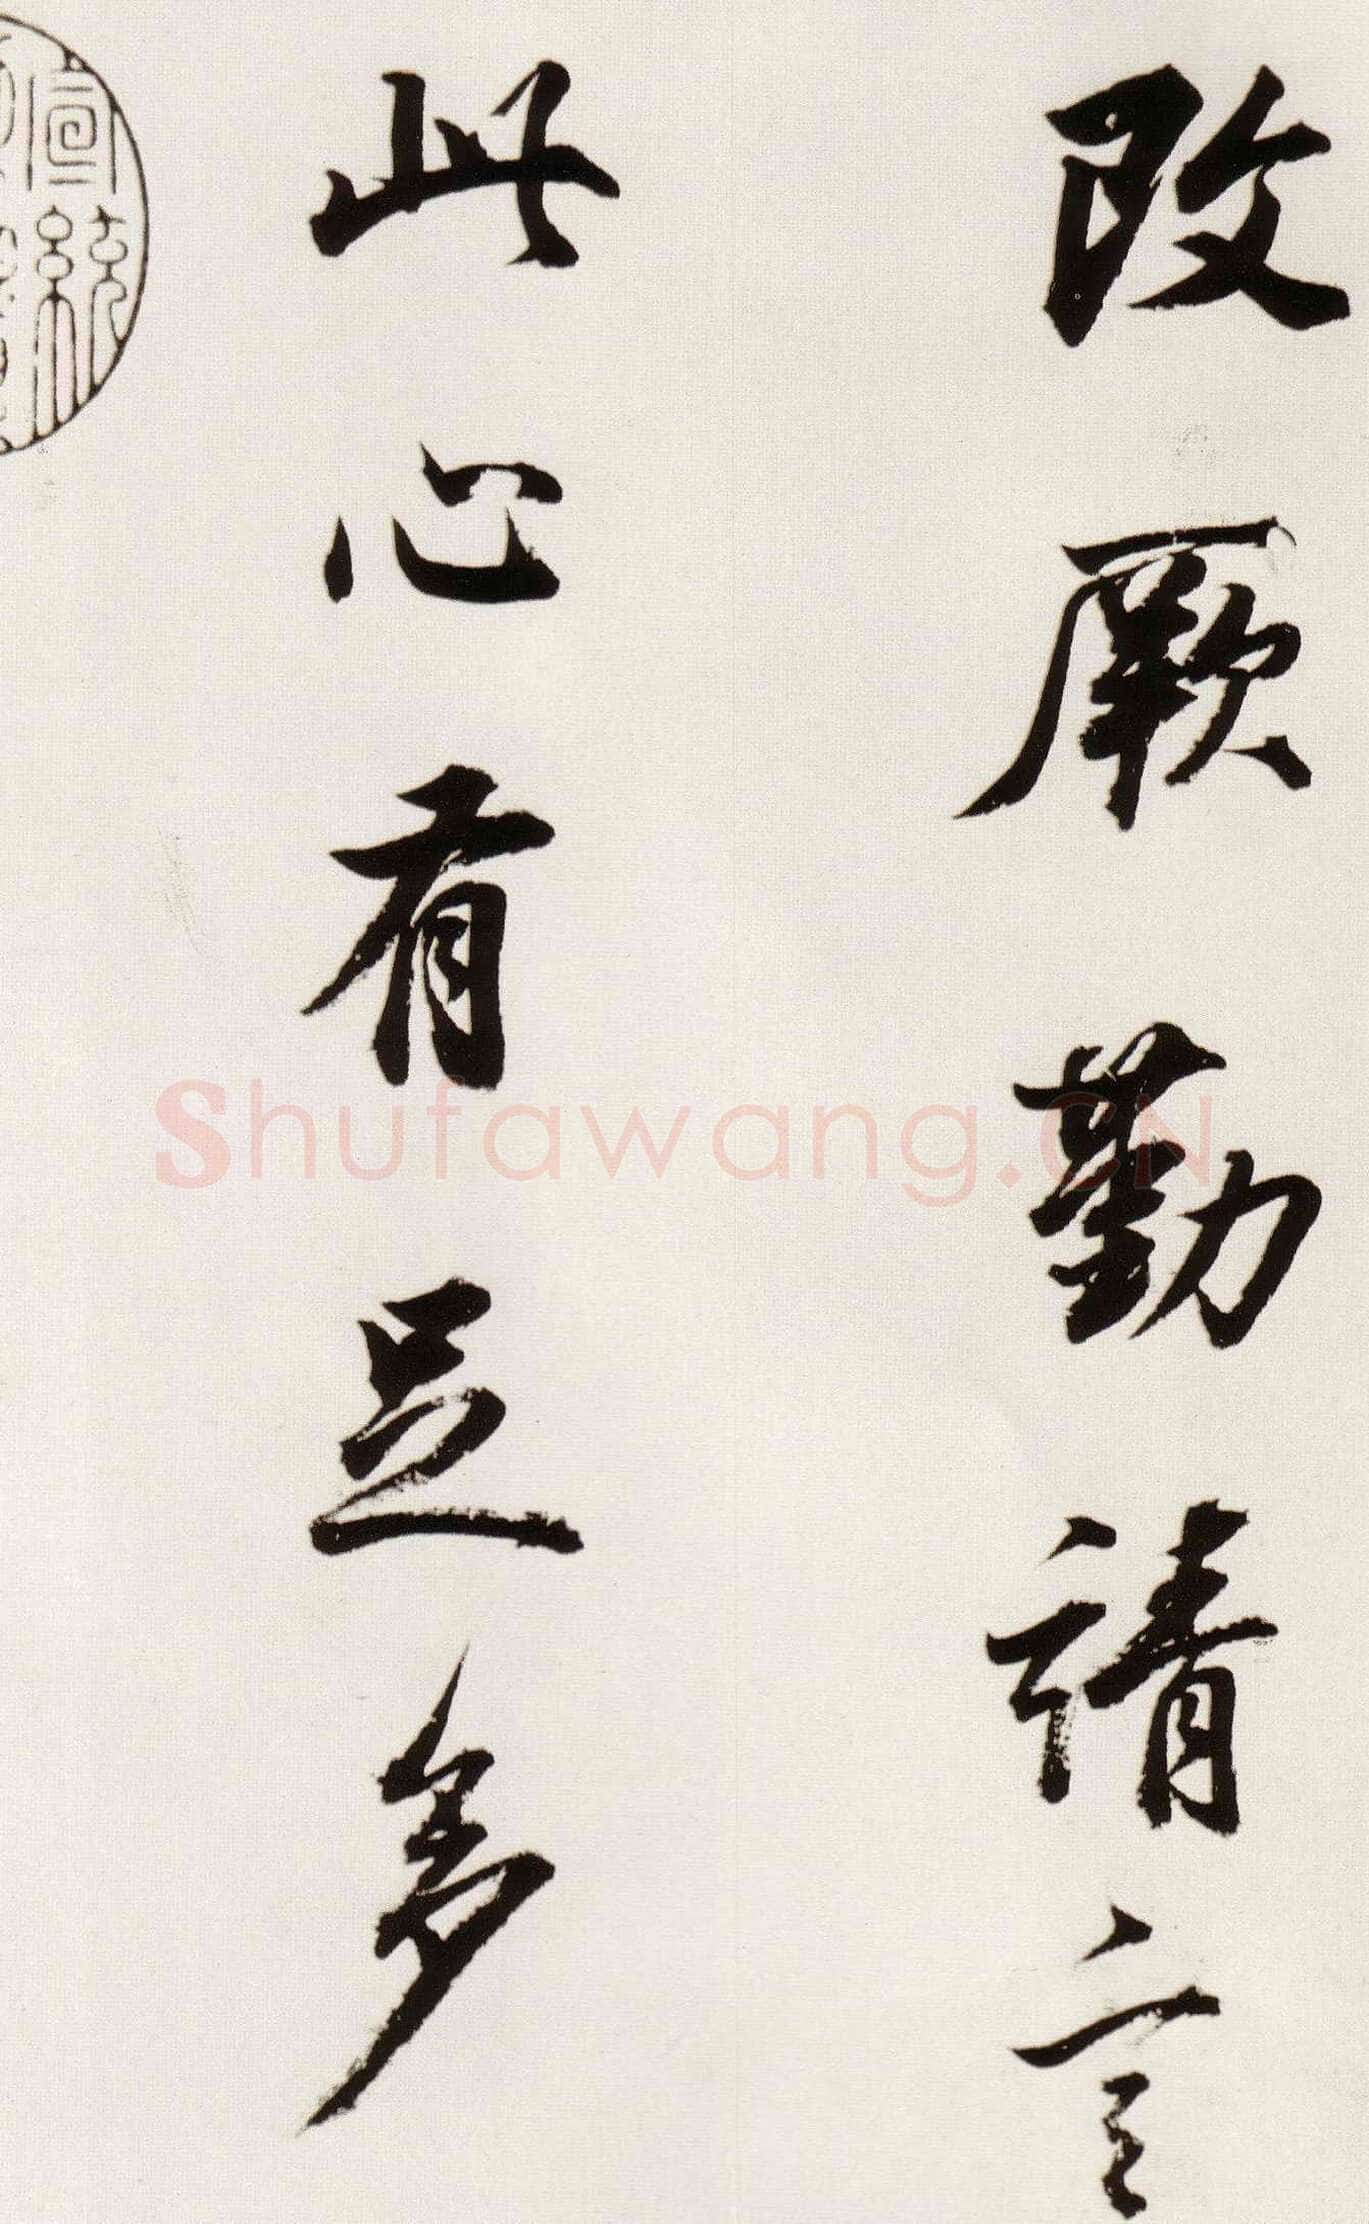 改厥勤請言
此心有足多
宣統
Shufawang.CN